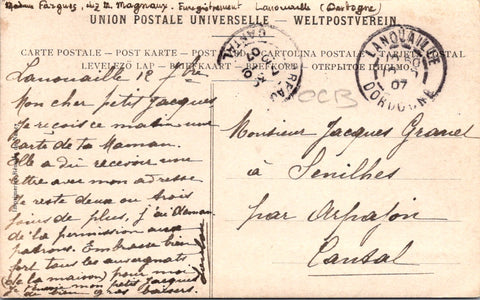 Madame Fargues, chez M. Magnaux. Enregistrement Lanouaille (Dordogne)
UNION POSTALE UNIVERSELLE – WELTPOSTVEREIN
CARTE POSTALE – POST CARD – POSTKARTE – CARTOLINA POSTALE – TARJETA POSTAL
LEVELEZŐ LAP – BRIEFKAART – BREFKORT – ОТКРЫТОЕ ПИСЬМО
LANOUAILLE
07
DORDOGNE
CANTAL
OCB
Lanouaille 12
Mon cher petit Jacques
Je reçois ce matin une
carte de ta Maman.
Elle a du recevoir une
lettre avec mon adresse
Je reste deux ou trois
jours de plus, j'ai
de la permission aux
patrons. Embrasse bien
fort tous les auvergnats
(de la maison) pour moi
mon petit Jacques
de bien gros baisers.
Monsieur Jacques Granet
à Senilhes
par Arpajon
Cantal